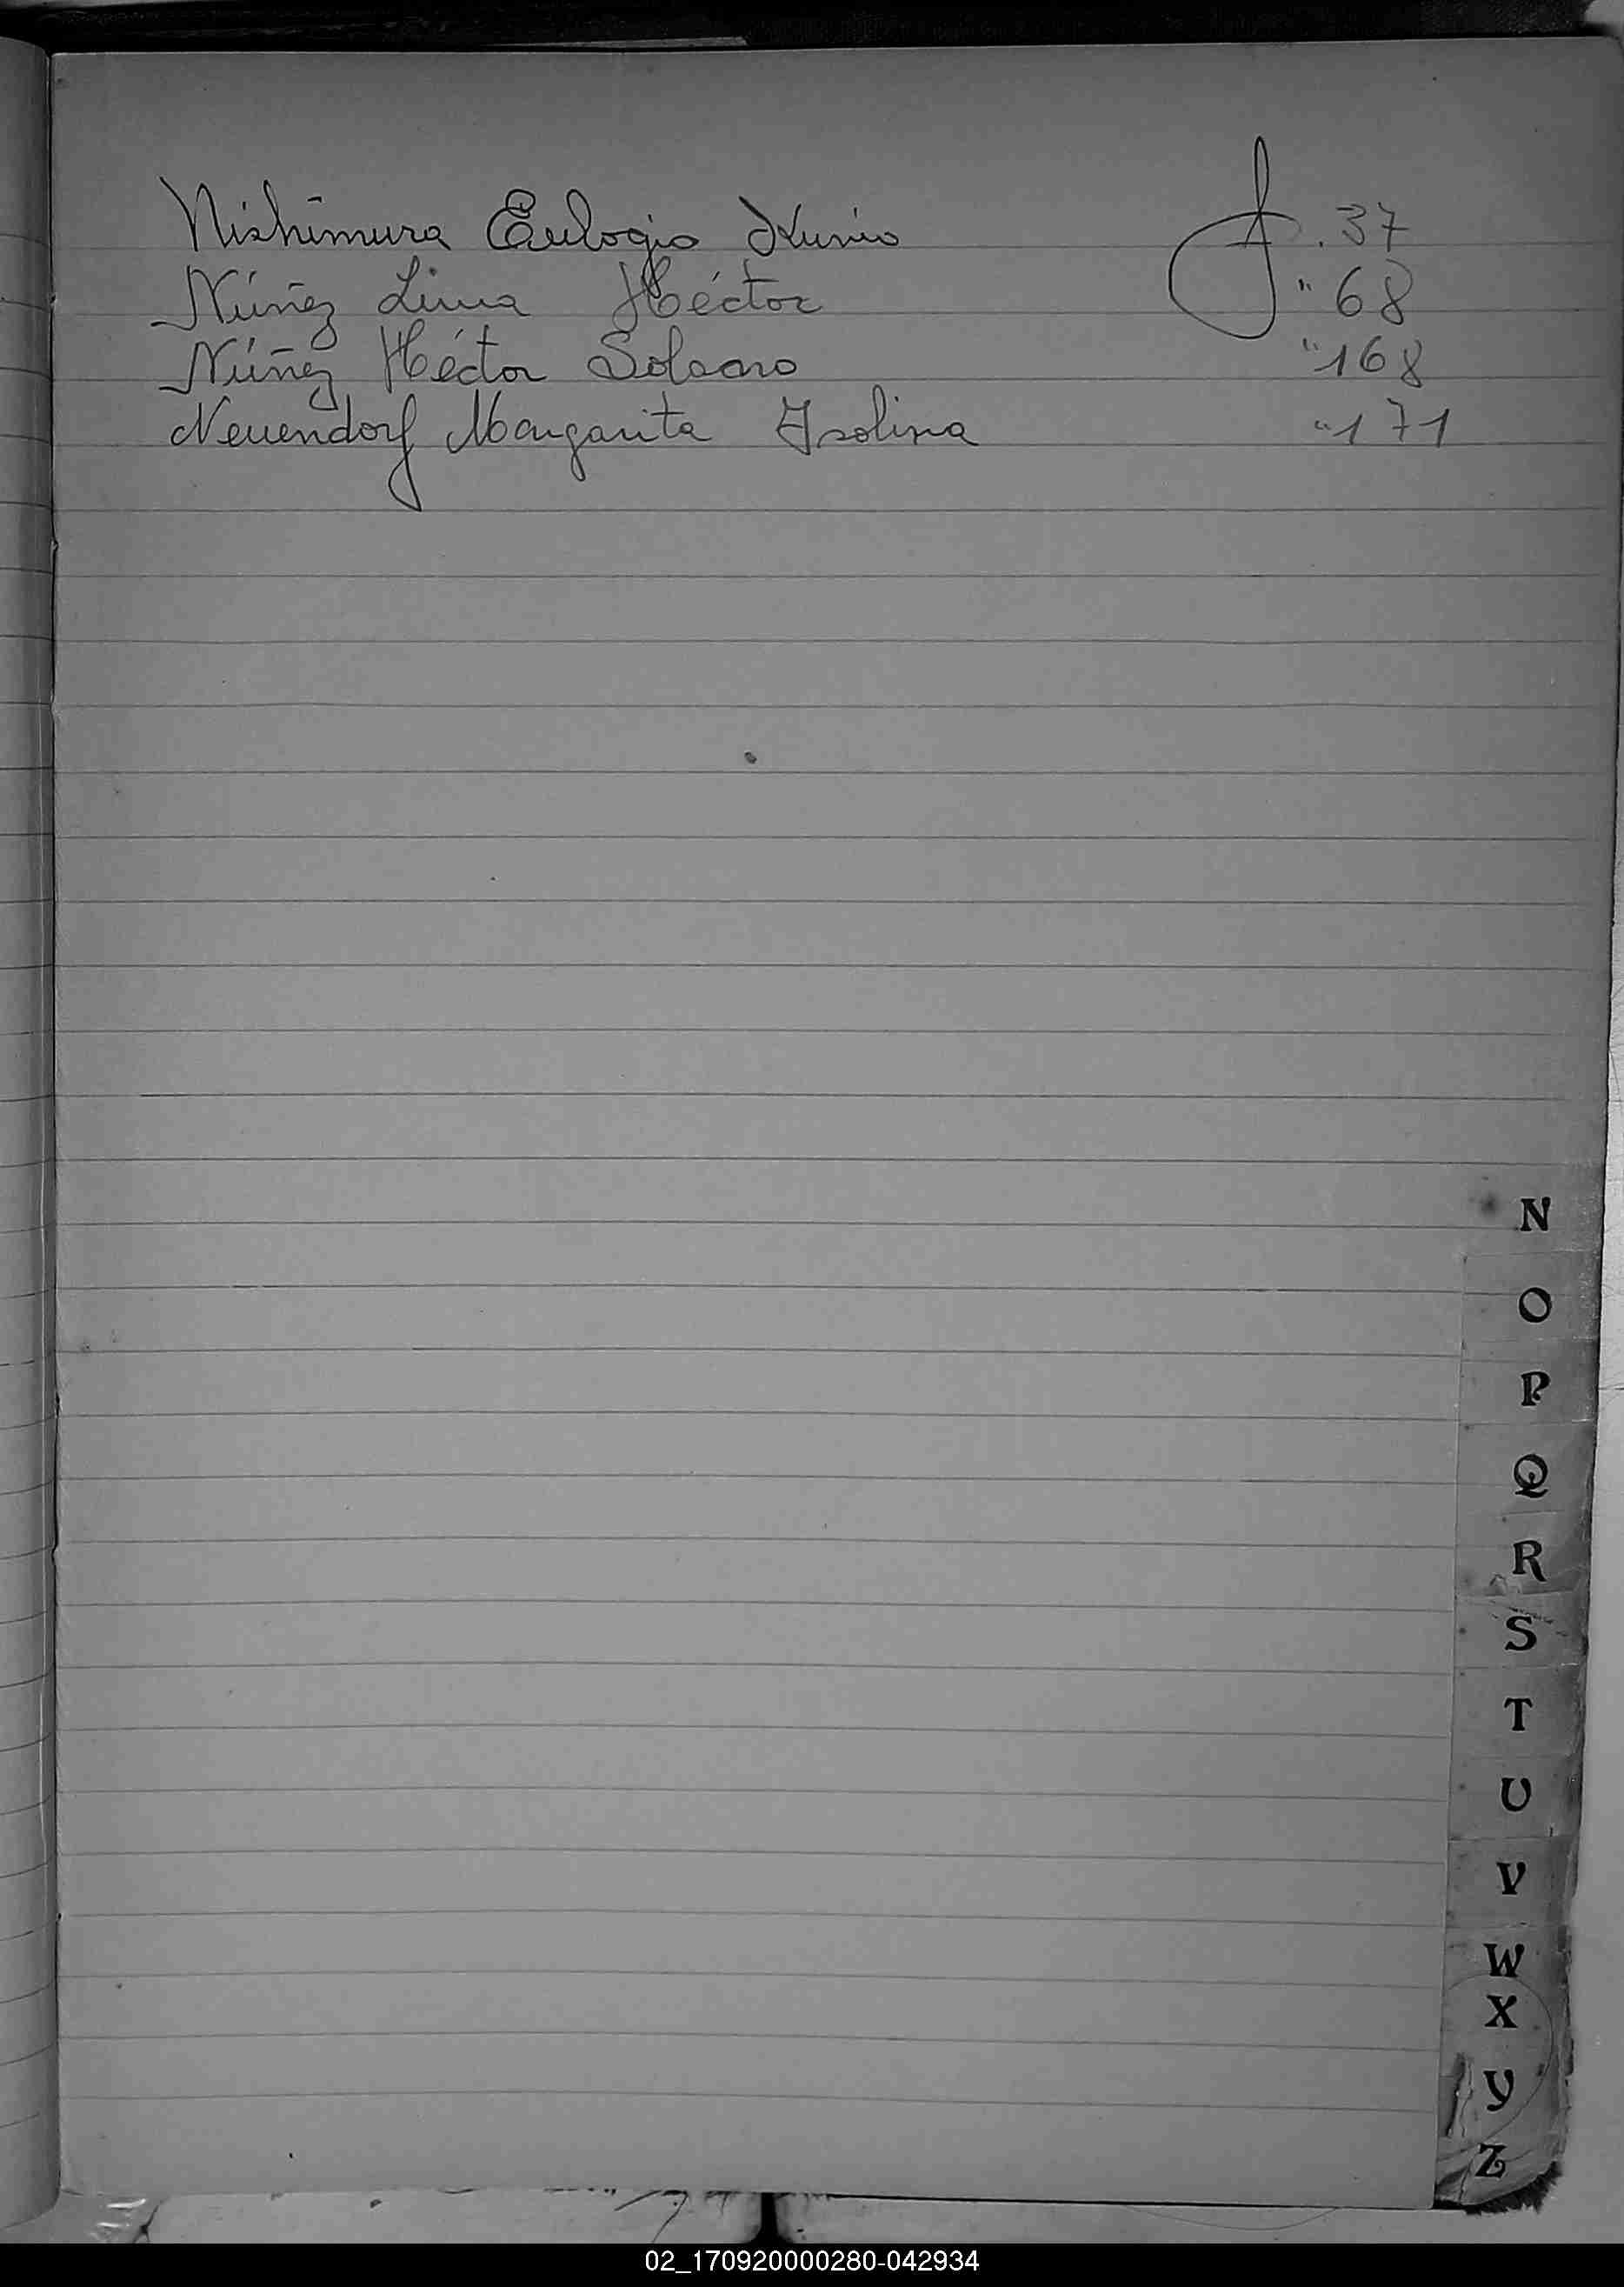 Nishimura Eulogio Kunio f. 37
Núñez Lima Héctor " 68
Núñez Héctor Solano " 168
Neuendorf Margarita Isolina " 171
N
O
P
Q
R
S
T
U
V
W
X
Y
Z
02_170920000280-042934